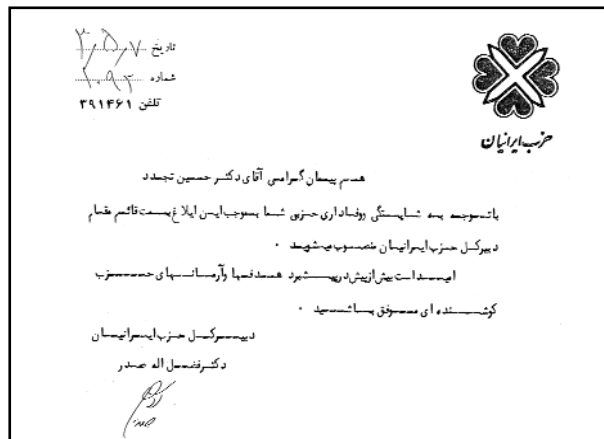 تاریخ ۳٫۵٫۷
شماره ۱۰۹۲
تلفن ۳۹۱۴۶۱
حزب ایرانیان
هم پیمان گرامی آقای دکتر حسین تجدد
با توجه به شایستگی ووفاداری حزبی شما بموجب این ابلاغ بسمت قائم مقام
دبیرکل حزب ایرانیان منصوب میشوید .
امید است بیش از پیش در پیشبرد هدفها وآرمانهای حزب
کوشنده ای موفق باشید .
دبیرکل حزب ایرانیان
دکتر فضل اله صدر